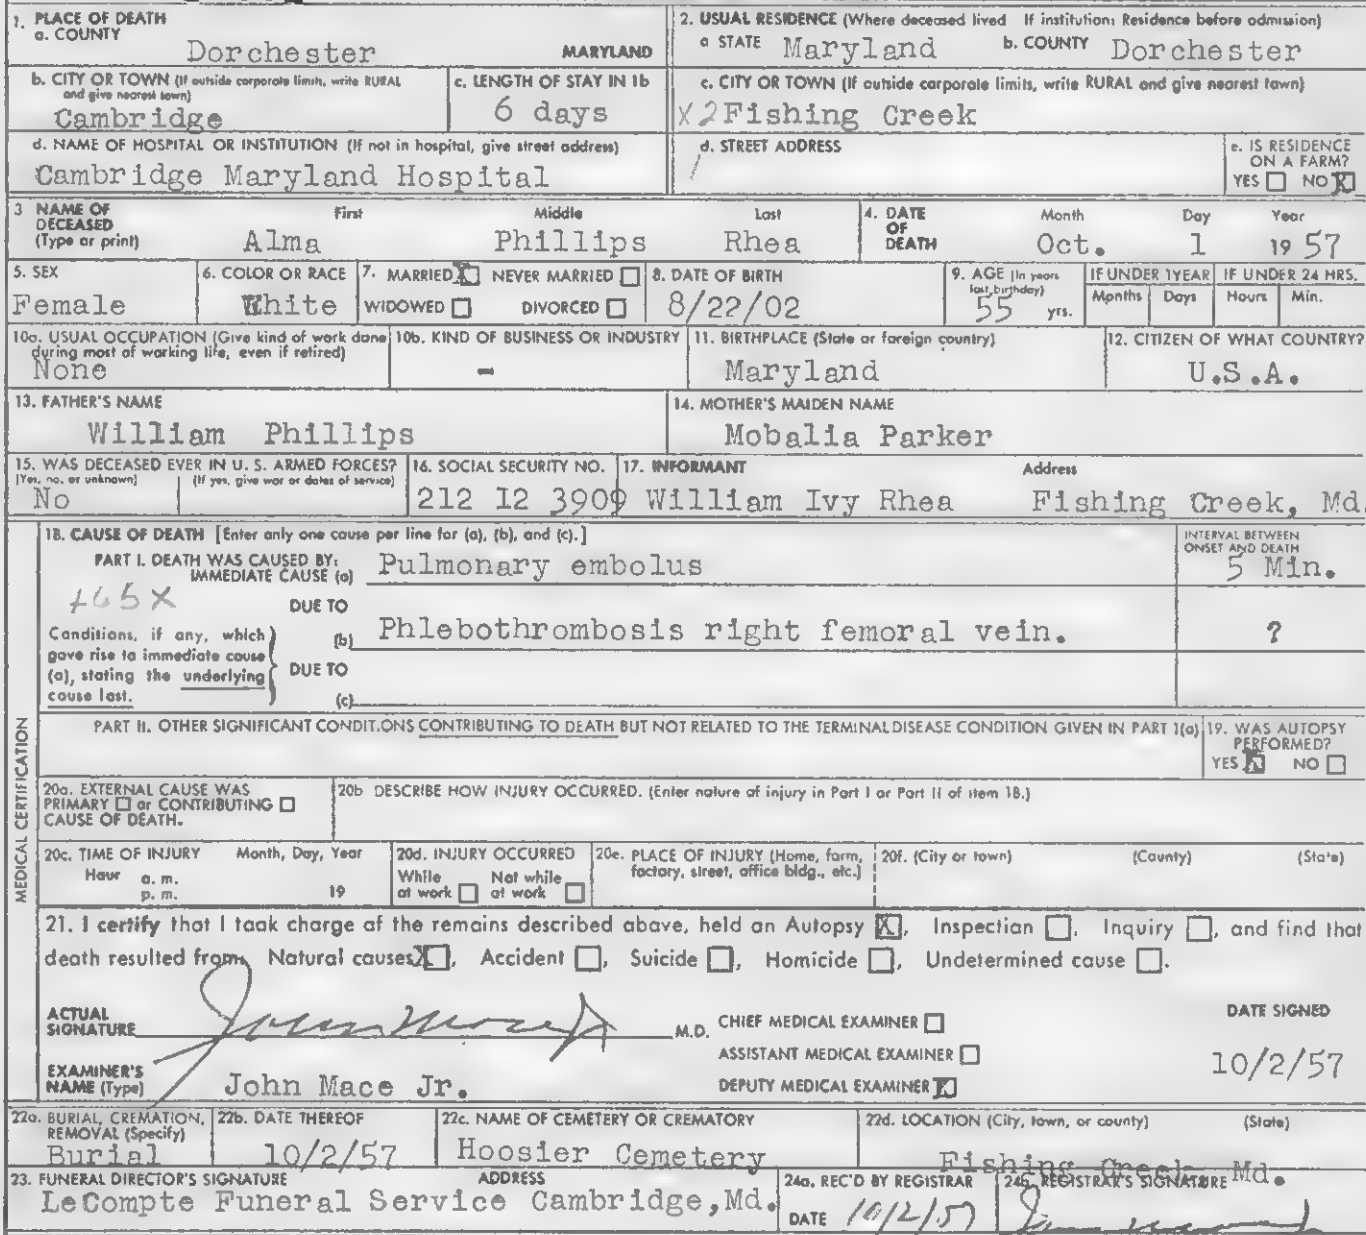 1. PLACE OF DEATH
a. COUNTY
Dorchester MARYLAND
2. USUAL RESIDENCE (Where deceased lived If institution: Residence before admission)
a STATE Maryland b. COUNTY Dorchester
b. CITY OR TOWN (If outside corporate limits, write RURAL and give nearest town)
Cambridge
c. LENGTH OF STAY IN 1b
6 days
c. CITY OR TOWN (If outside corporate limits, write RURAL and give nearest town)
X2 Fishing Creek
d. NAME OF HOSPITAL OR INSTITUTION (If not in hospital, give street address)
Cambridge Maryland Hospital
d. STREET ADDRESS
e. IS RESIDENCE ON A FARM?
YES NO X
3 NAME OF DECEASED (Type or print)
First Middle Last
Alma Phillips Rhea
4. DATE OF DEATH
Month Day Year
Oct. 1 19 57
5. SEX
Female
6. COLOR OR RACE
White
7. MARRIED X NEVER MARRIED
WIDOWED DIVORCED
8. DATE OF BIRTH
8/22/02
9. AGE (In years last birthday)
55 yrs.
IF UNDER 1 YEAR
Months Days
IF UNDER 24 HRS.
Hours Min.
10a. USUAL OCCUPATION (Give kind of work done during most of working life, even if retired)
None
10b. KIND OF BUSINESS OR INDUSTRY
-
11. BIRTHPLACE (State or foreign country)
Maryland
12. CITIZEN OF WHAT COUNTRY?
U.S.A.
13. FATHER'S NAME
William Phillips
14. MOTHER'S MAIDEN NAME
Mobalia Parker
15. WAS DECEASED EVER IN U. S. ARMED FORCES?
(Yes, no, or unknown) (If yes, give war or dates of service)
No
16. SOCIAL SECURITY NO.
212 I2 3909
17. INFORMANT Address
William Ivy Rhea Fishing Creek, Md.
MEDICAL CERTIFICATION
18. CAUSE OF DEATH [Enter only one cause per line for (a), (b), and (c).]
INTERVAL BETWEEN ONSET AND DEATH
PART I. DEATH WAS CAUSED BY:
IMMEDIATE CAUSE (a) Pulmonary embolus 5 Min.
DUE TO
Conditions, if any, which gave rise to immediate cause (a), stating the underlying cause last.
(b) Phlebothrombosis right femoral vein. ?
DUE TO
(c)
PART II. OTHER SIGNIFICANT CONDITIONS CONTRIBUTING TO DEATH BUT NOT RELATED TO THE TERMINAL DISEASE CONDITION GIVEN IN PART I(a)
19. WAS AUTOPSY PERFORMED?
YES X NO
20a. EXTERNAL CAUSE WAS PRIMARY or CONTRIBUTING CAUSE OF DEATH.
20b DESCRIBE HOW INJURY OCCURRED. (Enter nature of injury in Part I or Part II of item 18.)
20c. TIME OF INJURY Month, Day, Year
Hour a. m.
p. m. 19
20d. INJURY OCCURRED
While at work Not while at work
20e. PLACE OF INJURY (Home, farm, factory, street, office bldg., etc.)
20f. (City or town) (County) (State)
21. I certify that I took charge of the remains described above, held an Autopsy X, Inspection , Inquiry , and find that
death resulted from: Natural causes X, Accident , Suicide , Homicide , Undetermined cause .
ACTUAL SIGNATURE John Mace Jr M.D.
CHIEF MEDICAL EXAMINER
ASSISTANT MEDICAL EXAMINER
DEPUTY MEDICAL EXAMINER X
DATE SIGNED
10/2/57
EXAMINER'S NAME (Type) John Mace Jr.
22a. BURIAL, CREMATION, REMOVAL (Specify)
Burial
22b. DATE THEREOF
10/2/57
22c. NAME OF CEMETERY OR CREMATORY
Hoosier Cemetery
22d. LOCATION (City, town, or county) (State)
Fishing Creek Md.
23. FUNERAL DIRECTOR'S SIGNATURE ADDRESS
LeCompte Funeral Service Cambridge, Md.
24a. REC'D BY REGISTRAR
DATE 10/2/57
24b. REGISTRAR'S SIGNATURE